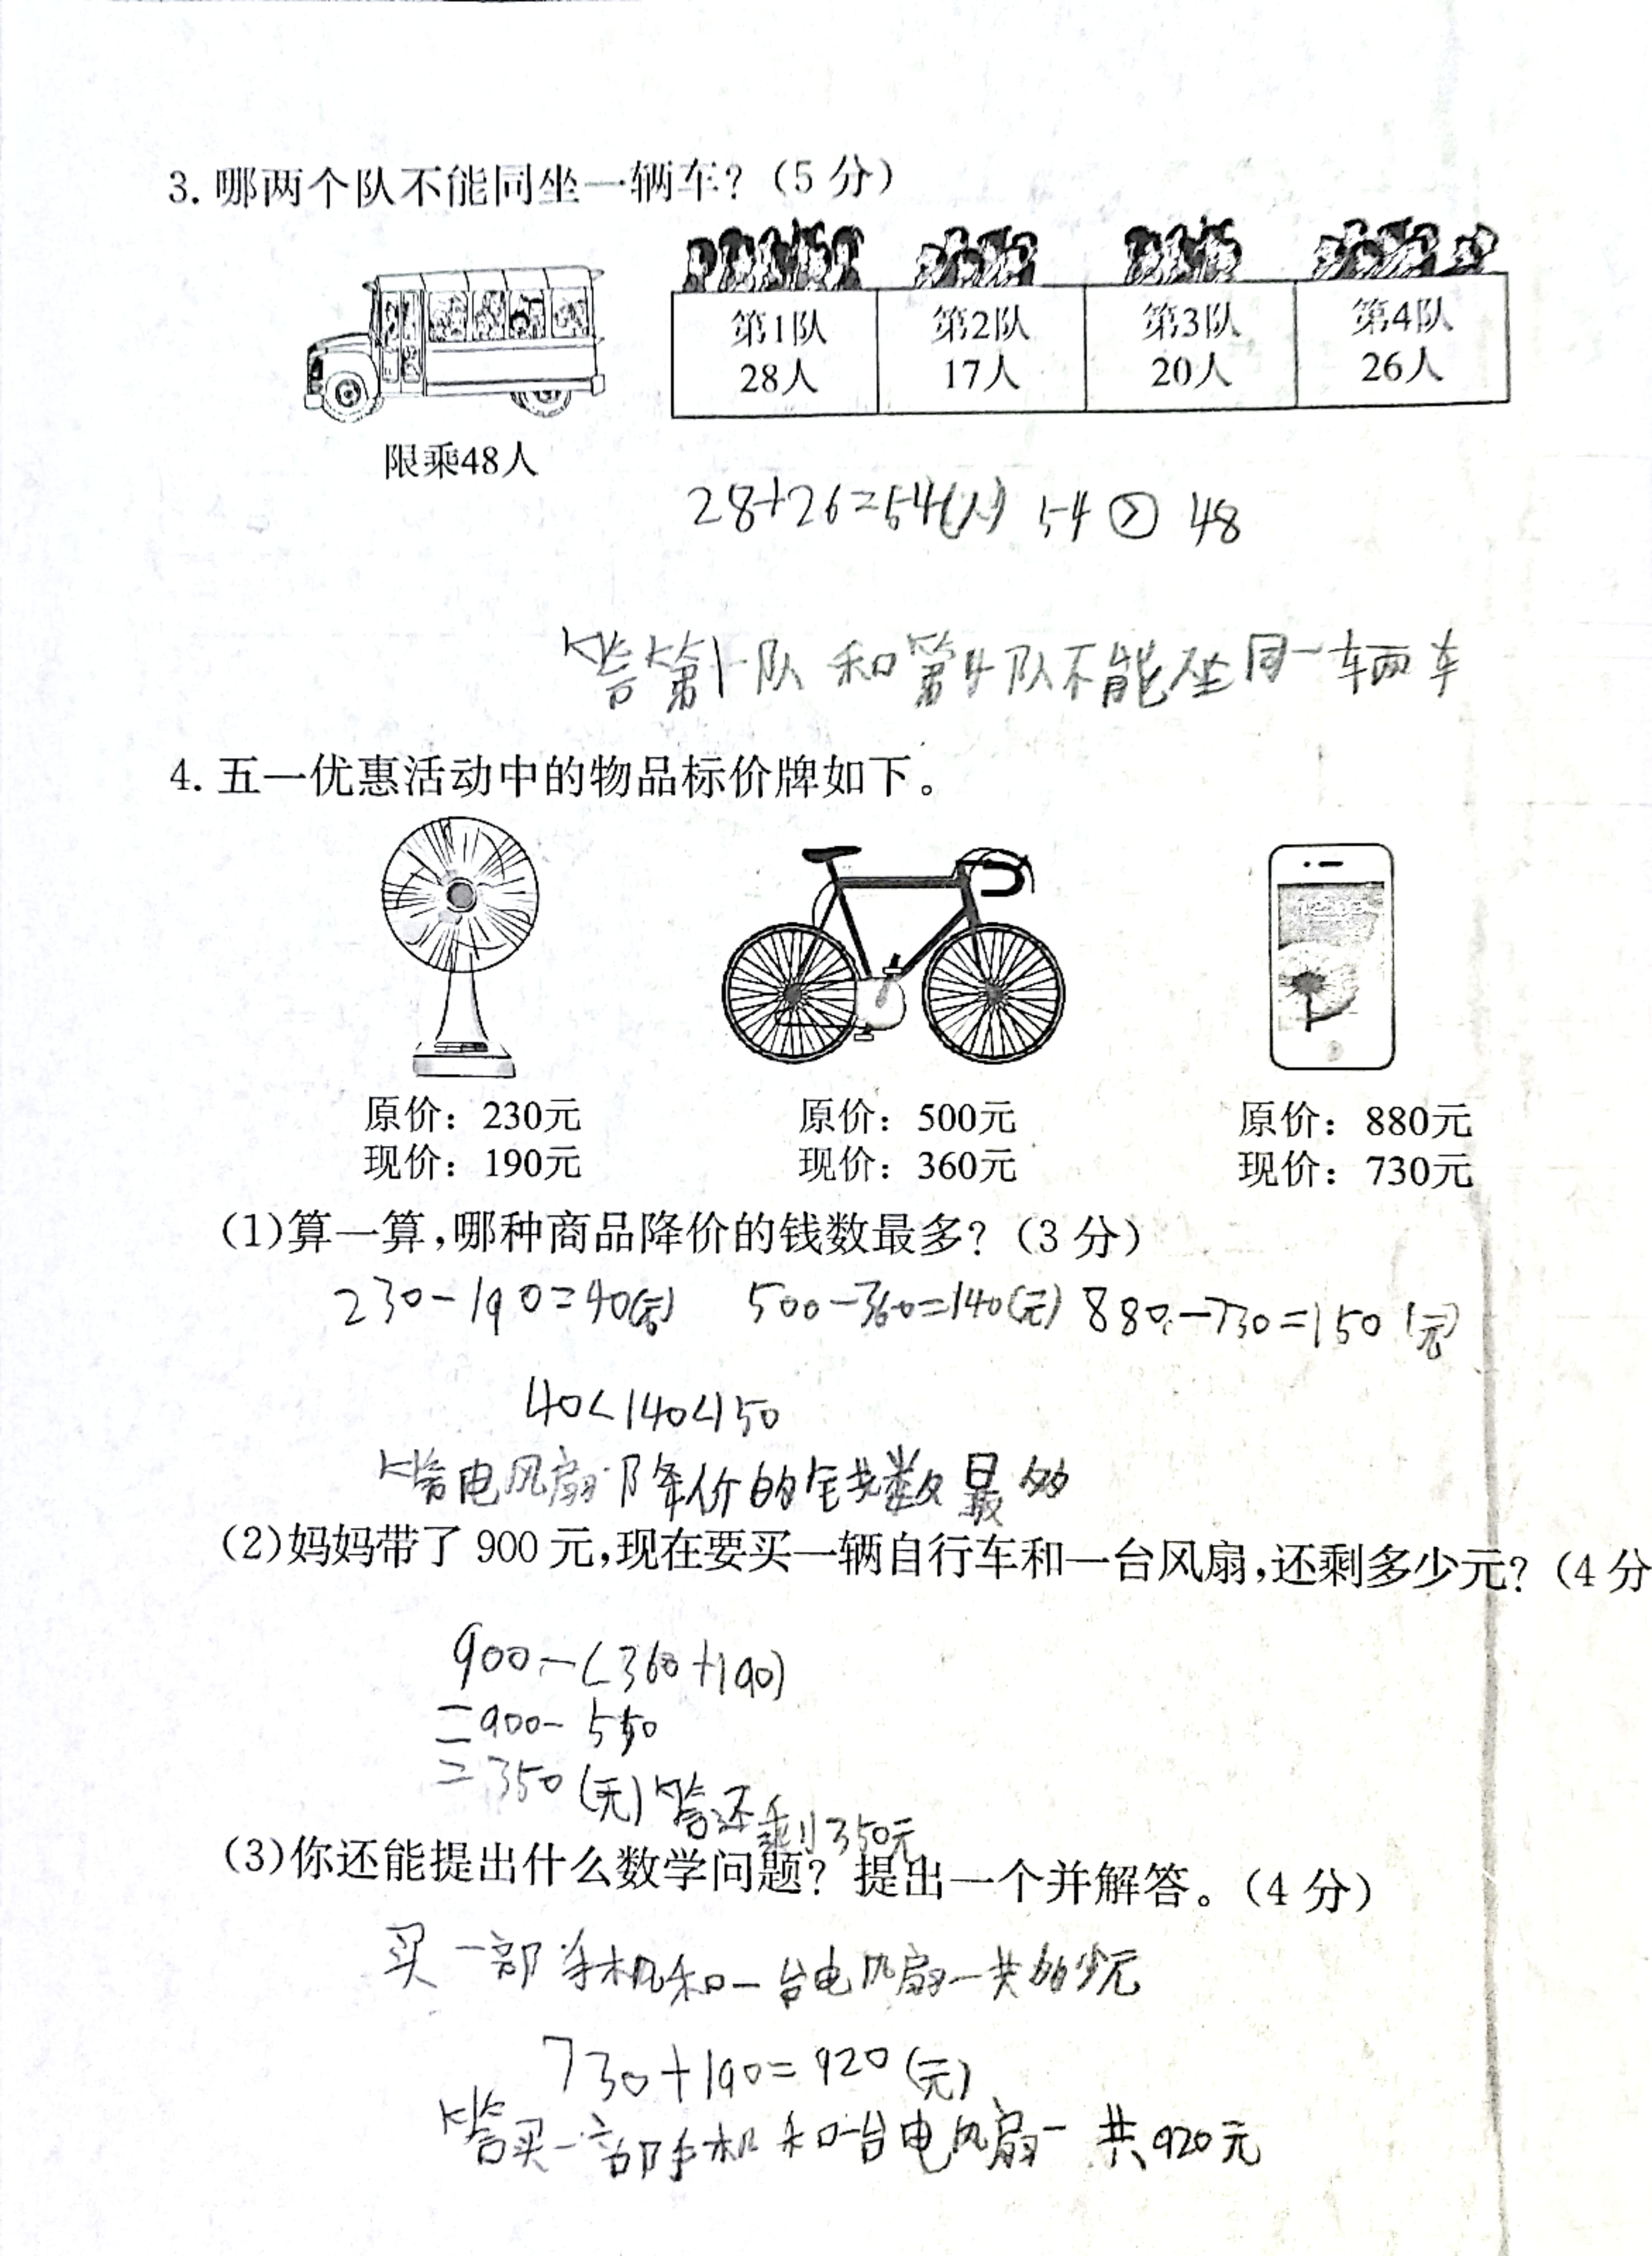 3. 哪两个队不能同坐一辆车?(5分)
第1队 第2队 第3队 第4队
28人 17人 20人 26人
限乘48人
28+26=54(人) 54 > 48
答第1队和第4队不能坐同一辆车
4. 五一优惠活动中的物品标价牌如下。
原价：230元 原价：500元 原价：880元
现价：190元 现价：360元 现价：730元
(1)算一算,哪种商品降价的钱数最多?(3分)
230-190=40(元) 500-360=140(元) 880-730=150(元)
40<140<150
答电风扇降价的钱数最多
(2)妈妈带了900元,现在要买一辆自行车和一台风扇,还剩多少元?(4分
900-(360+190)
=900-550
=350(元) 答还剩350元
(3)你还能提出什么数学问题? 提出一个并解答。(4分)
买一部手机和一台电风扇一共多少元
730+190=920(元)
答买一部手机和一台电风扇一共920元